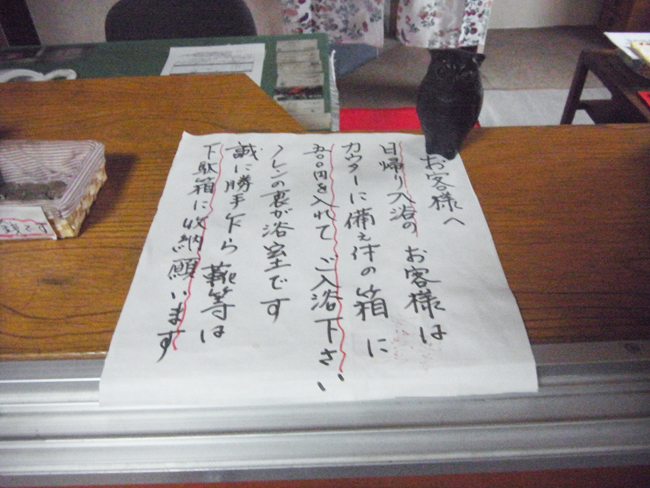 お客様へ
日帰り入浴のお客様は
カウンターに備え付の箱に
五〇〇円を入れてご入浴下さい、
ノレンの裏が浴室です
誠に勝手乍ら靴等は
下駄箱に収納願います